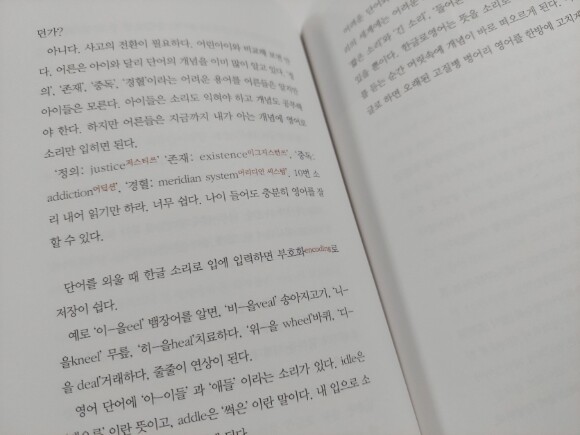 던가?
아니다. 사고의 전환이 필요하다. 어린아이와 비교해 보면 안
다. 어른은 아이와 달리 단어의 개념을 이미 많이 알고 있다. '정
의', '존재', '중독', '경혈'이라는 어려운 용어를 어른들은 알지만
아이들은 모른다. 아이들은 소리도 익혀야 하고 개념도 공부해
야 한다. 하지만 어른들은 지금까지 내가 아는 개념에 영어로
소리만 입히면 된다.
'정의: justice저스티쓰' '존재: existence이그지스턴쓰', '중독:
addiction어딕션', '경혈: meridian system머리디언 씨스텀'. 10번 소
리 내어 읽기만 하라. 너무 쉽다. 나이 들어도 충분히 영어를 잘
할 수 있다.
단어를 외울 때 한글 소리로 입에 입력하면 부호화encoding로
저장이 쉽다.
예로 '이-을eel' 뱀장어를 알면, '비-을veal' 송아지고기, '니-
을kneel' 무릎, '히-을heal'치료하다, '위-을 wheel'바퀴, '디-
을 deal'거래하다. 줄줄이 연상이 된다.
영어 단어에 '아-이들' 과 '애들' 이라는 소리가 있다. idle은
이란 뜻이고, addle은 '썩은' 이란 말이다. 내 입으로 소
된다.
어려운
리의 세계에는 어려운
짧은 소리'와 '긴 소리', '들어온
있을 뿐이다. 한글로영어는 뜻을 소리로
를 듣는 순간 머릿속에 개념이 바로 떠오르게 된다.
글로 하면 오래된 고질병 벙어리 영어를 한방에 고치게